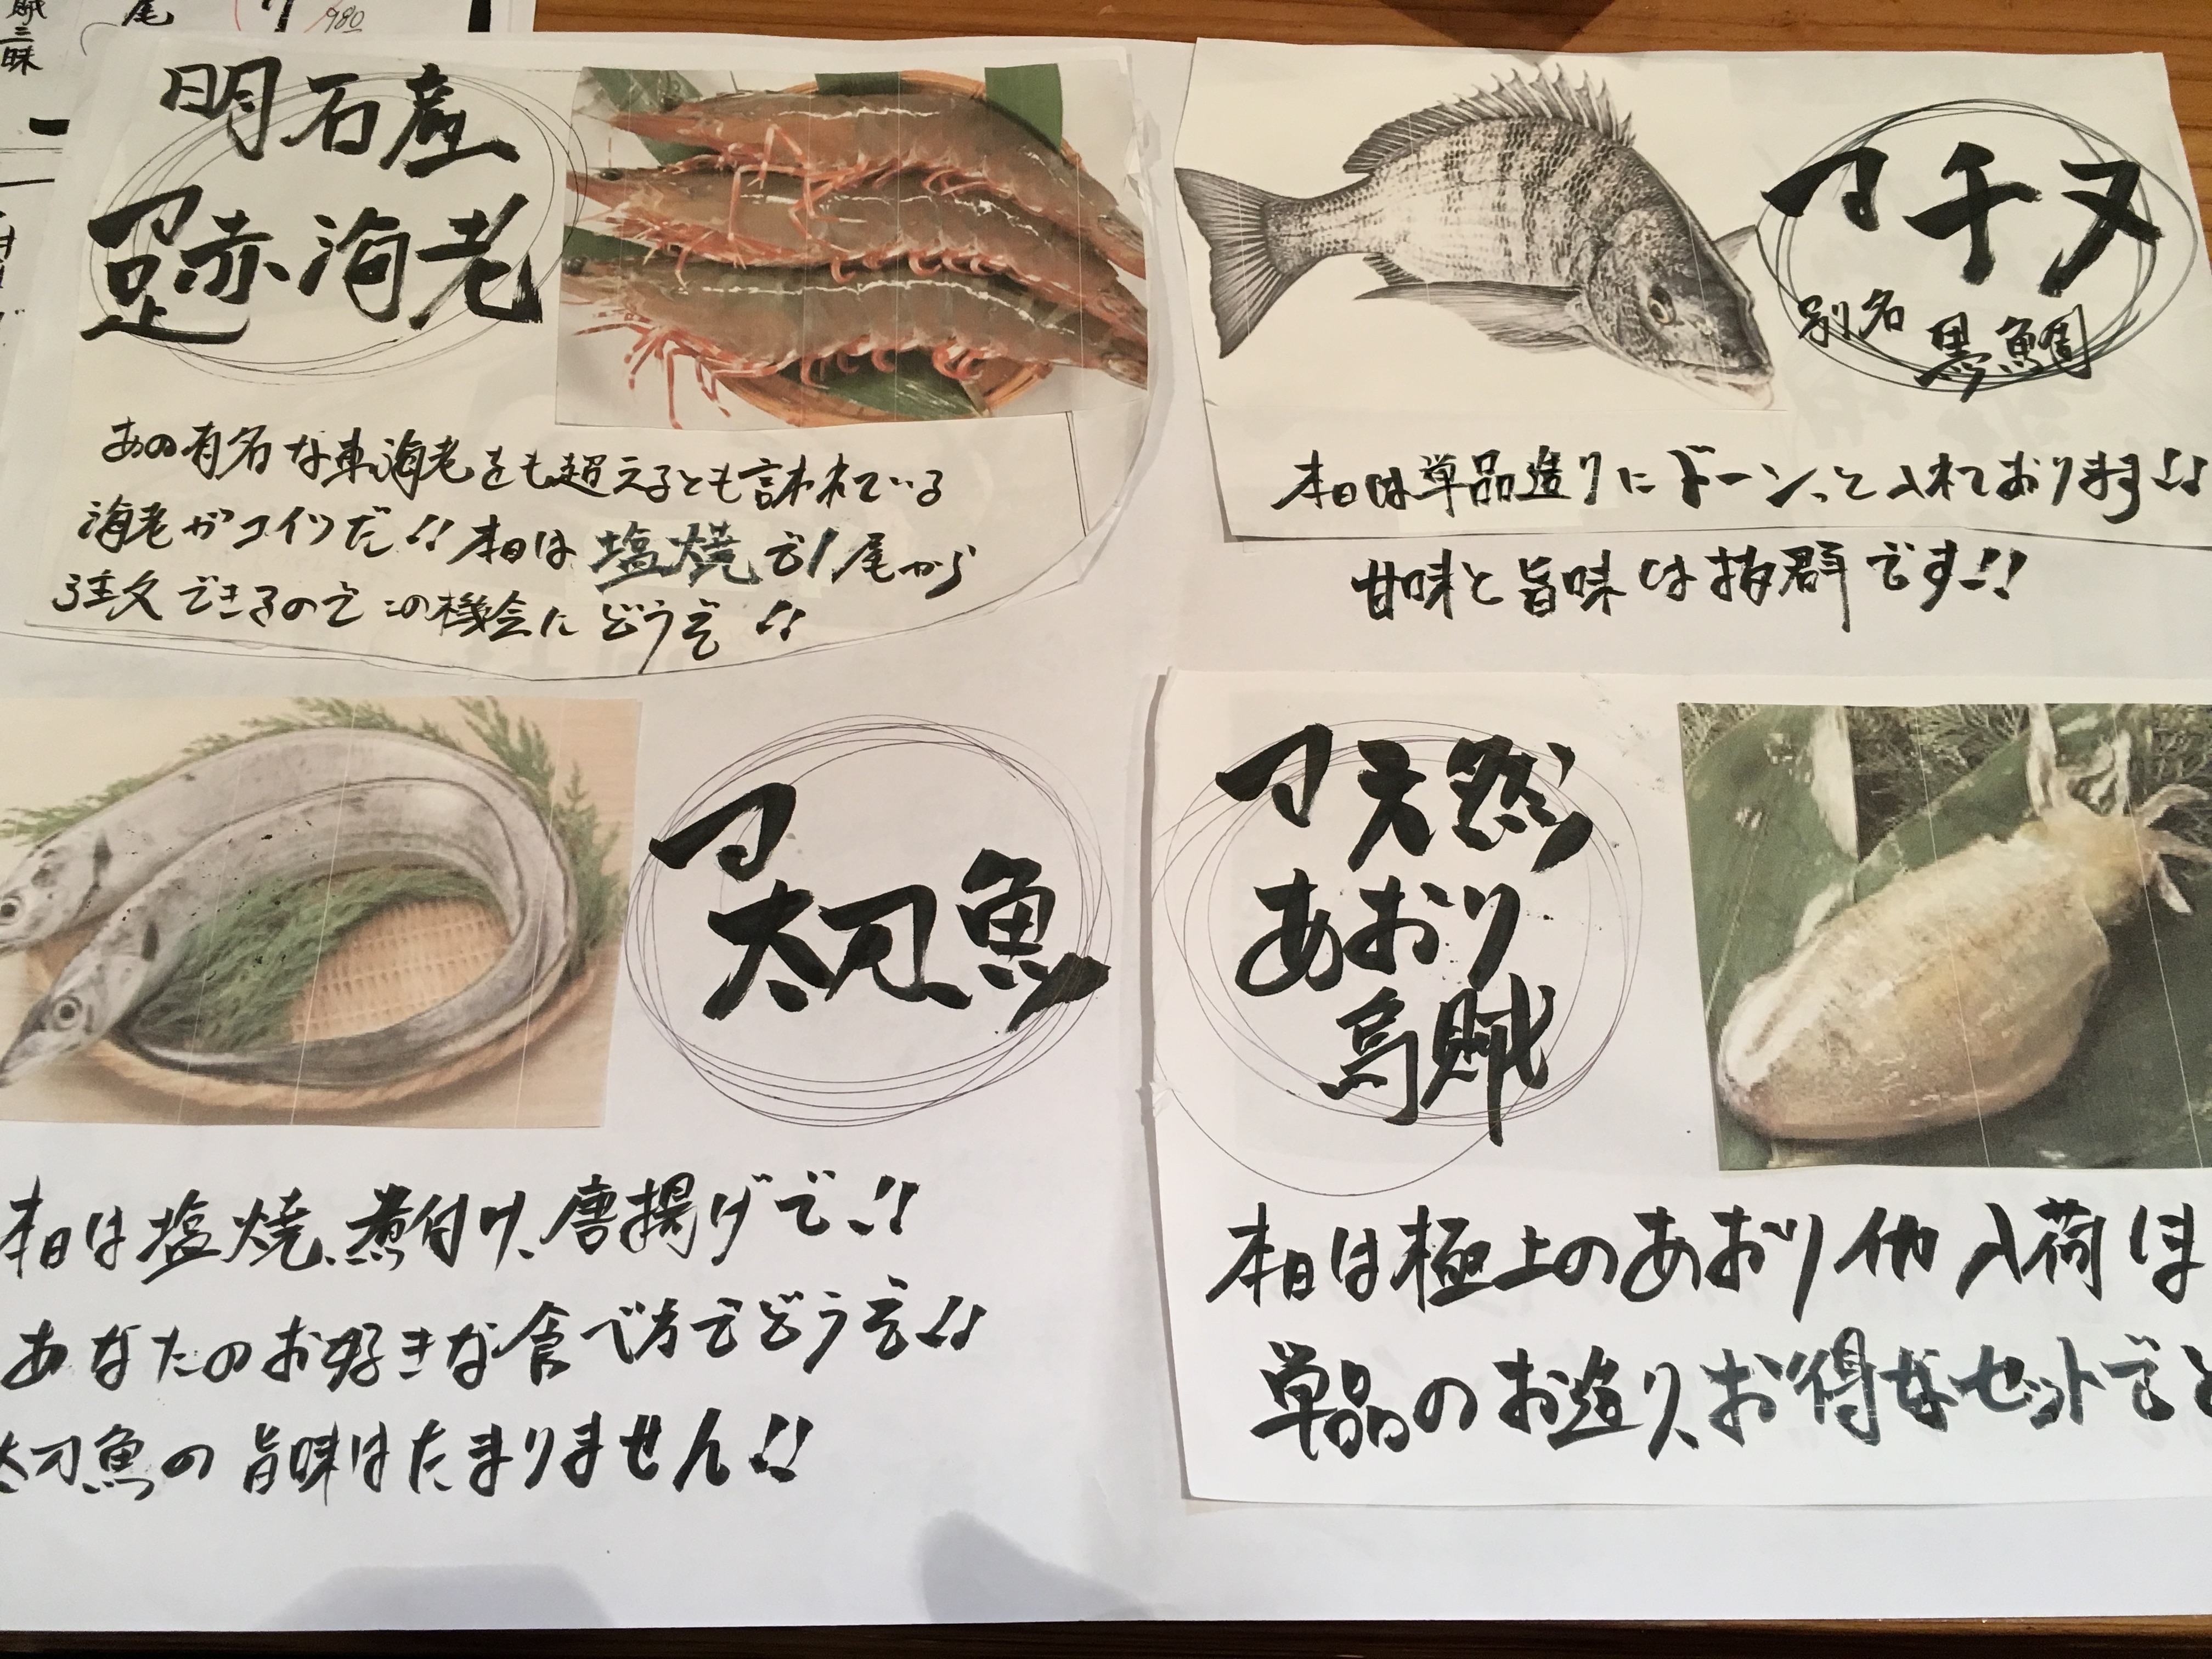 烏賊三昧
尾
980
明石産
足赤海老
あの有名な車海老をも超えるとも言われている
海老がコイツだ!!本日は塩焼で1尾から
注文できるのでこの機会にどうぞ!!
マチヌ
別名
黒鯛
本日は単品造りにドーンっと入れております!!
甘味と旨味は抜群です!!
マ
太刀魚
本日は塩焼、煮付け、唐揚げで!!
あなたのお好きな食べ方でどうぞ!!
太刀魚の旨味はたまりません!!
マ天然
あおり
烏賊
本日は極上のあおりイカ入荷
単品のお造り、お得なセットで